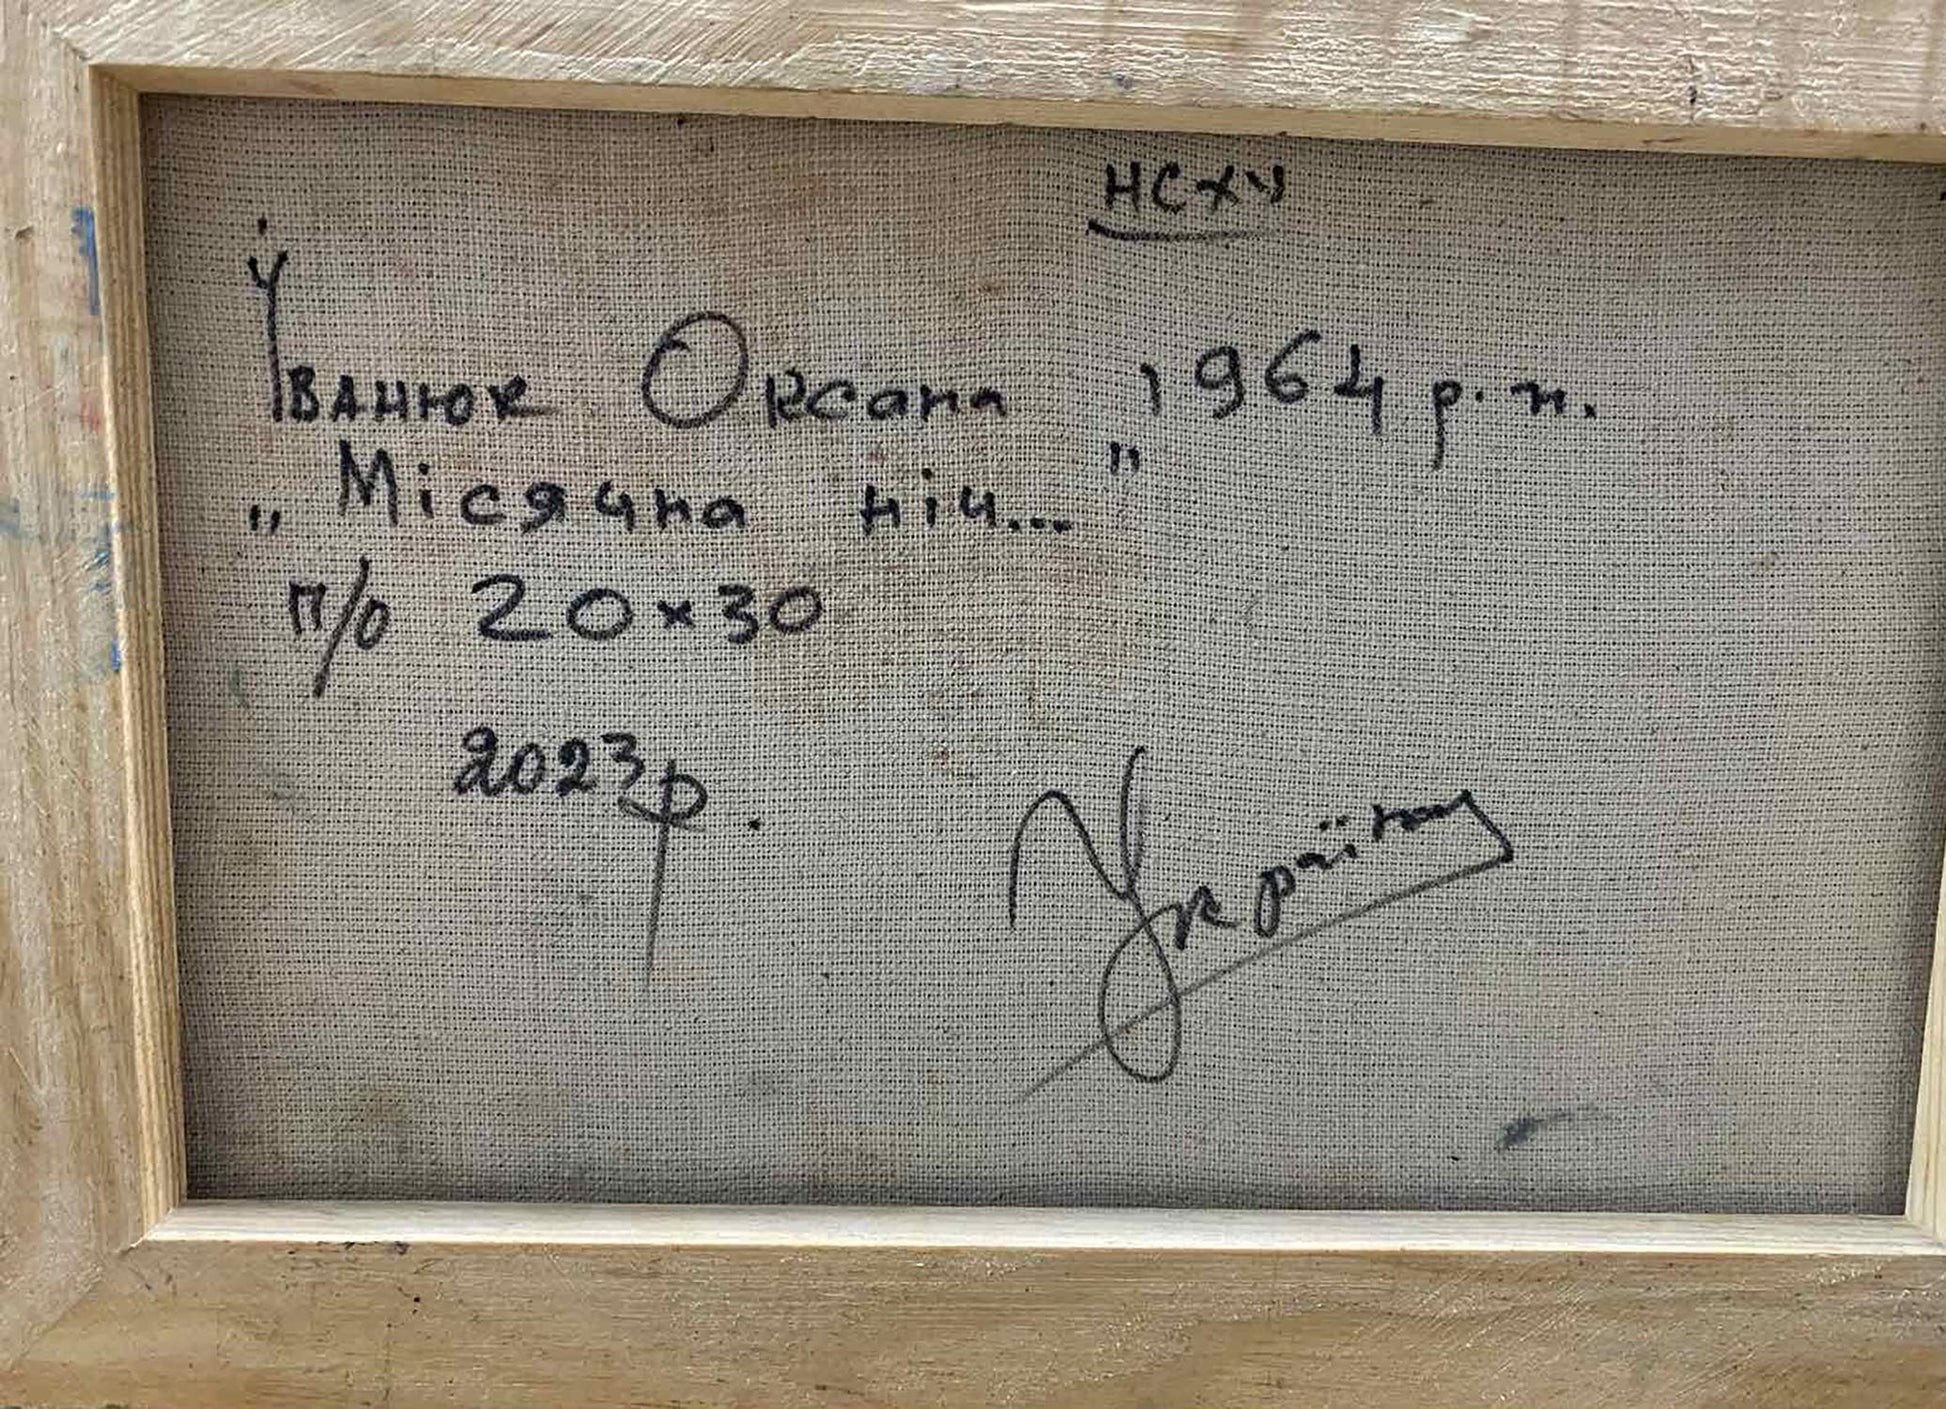 НСХУ
Іванюк Оксана 1964 р.н.
„Місячна ніч..."
п/о 20×30
2023р.
Україна